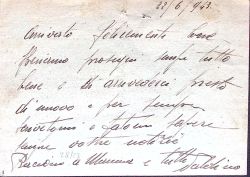 22/6/943.
arrivato felicemente bene
Speriamo prosegua sempre tutto
bene e di arrivederci presto
di nuovo e per sempre
scrivetemi e fatemi sapere
vostre notizie
Bacioni a Mamma e tutti